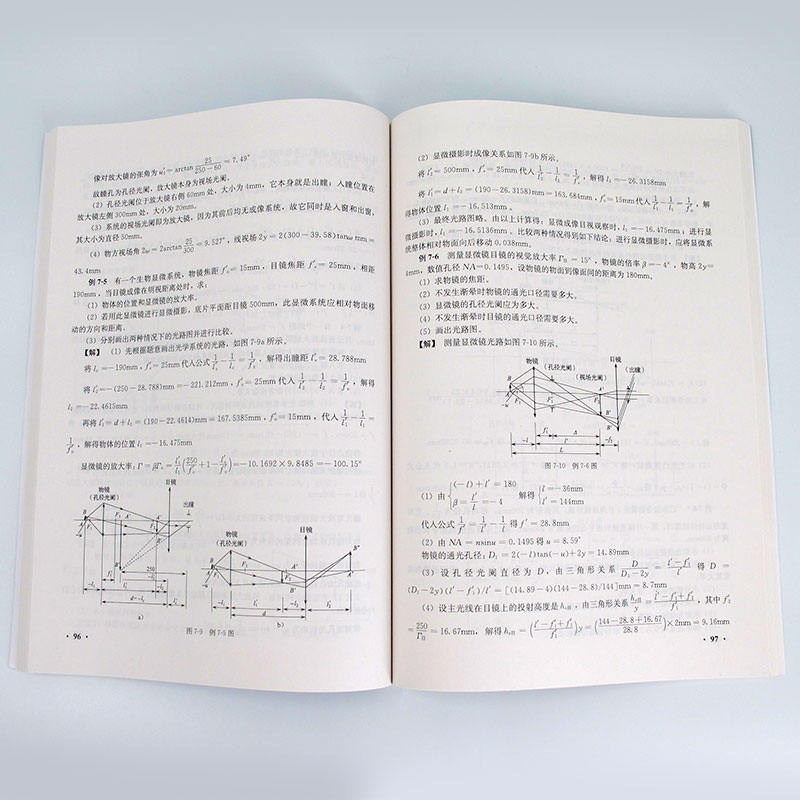 像对放大镜的张角为ω′₂=arctan 25/(250-60) =7.49°
故瞳孔为孔径光阑,放大镜本身为视场光阑。
(2) 孔径光阑位于放大镜右侧 60mm 处,大小为 4mm,它本身就是出瞳;入瞳位置在
放大镜左侧 300mm 处,大小为 20mm。
(3) 系统的视场光阑即为放大镜,因为其前后均无成像系统,故它同时是入窗和出窗,
其大小为直径 50mm。
(4) 物方视场角 2ω=2arctan 25/300 =9.527°,线视场 2y=2(300-39.58)tanω =
43.4mm
例 7-5 有一个生物显微系统,物镜焦距 f′ₒ=15mm,目镜焦距 f′ₑ=25mm,相距
190mm,当目镜成像在明视距离处时,求:
(1) 物体的位置和显微镜的放大率。
(2) 若用此显微镜进行显微摄影,底片平面距目镜 500mm,此显微系统应相对物面移
动的方向和距离。
(3) 分别画出两种情况下的光路图并进行比较。
【解】 (1) 先根据题意画出光学系统的光路,如图 7-9a 所示。
将 lₑ=-190mm,f′ₑ=25mm 代入公式 1/l′₂ - 1/l₂ = 1/f′ₑ,解得出瞳距 l′ₑ=28.788mm
将 l′₂=-(250-28.788)mm=-221.212mm,f′ₑ=25mm 代入 1/l′₂ - 1/l₂ = 1/f′ₑ,解得
l₂=-22.4615mm
再将 l′₁=d+l₂=(190-22.4614)mm=167.5385mm,f′ₒ=15mm,代入 1/l′₁ - 1/l₁ =
1/f′ₒ,解得物体的位置 l₁=-16.475mm
显微镜的放大率:Γ=βΓₑ= l′₁/l₁ (250/f′ₑ +1- l′ₑ/f′ₑ)=-10.1692×9.8485=-100.15°
物镜
(孔径光阑)
目镜
出瞳
250
d=-lₑ
a)
物镜
(孔径光阑)
目镜
d
b)
图 7-9 例 7-5 图
·96·
(2) 显微摄影时成像关系如图 7-9b 所示。
将 l′₂=500mm,f′ₑ=25mm 代入 1/l′₂ - 1/l₂ = 1/f′ₑ,解得 l₂=-26.3158mm
将 l′₁=d+l₂=(190-26.3158)mm=163.684mm,f′ₒ=15mm 代入 1/l′₁ - 1/l₁ = 1/f′ₒ,解
得物体位置 l₁=-16.513mm。
(3) 最终光路图略。由以上计算得:显微成像目视观察时,l₁=-16.475mm;进行显
微摄影时,l₁=-16.5136mm。比较两种情况得到如下结论:进行显微摄影时,应将显微系
统整体相对物面向后移动 0.038mm。
例 7-6 测量显微镜目镜的视觉放大率 Γ目=15°,物镜的倍率 β=-4°,物高 2y=
4mm,数值孔径 NA=0.1495,设物镜的物面到像面间的距离为 180mm。
(1) 求物镜的焦距。
(2) 不发生渐晕时物镜的通光口径需要多大。
(3) 显微镜的孔径光阑应为多大。
(4) 不发生渐晕时目镜的通光口径需要多大。
(5) 画出光路图。
【解】 测量显微镜光路如图 7-10 所示。
物镜
(孔径光阑)
(视场光阑)
目镜
(出瞳)
图 7-10 例 7-6 图
(1) 由 { (-l)+l′=180 β= l′/l =-4 解得 { l=-36mm l′=144mm
代入公式 1/f′ = 1/l′ - 1/l 得 f′=28.8mm
(2) 由 NA=nsinu=0.1495 得 u=8.59°
物镜的通光孔径:D₁=2(-l)tan(-u)+2y=14.89mm
(3) 设孔径光阑直径为 D,由三角形关系 D/(D₁-2y) = (l′-f′)/l′ 得 D=
(D₁-2y)(l′-f′)/l′=[(14.89-4)(144-28.8)/144]mm=8.7mm
(4) 设主光线在目镜上的投射高度是 h₂目,由三角形关系 h₂目/y = (l′-f′₁+f′₂)/f′₁,其中 f′₂
= 250/Γ目 =16.67mm,解得 h₂目=((l′-f′₁+f′₂)/f′₁)y=((144-28.8+16.67)/28.8)×2mm=9.16mm
·97·